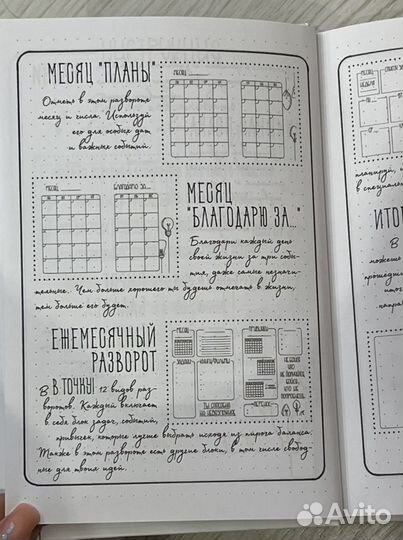 МЕСЯЦ "ПЛАНЫ"
Отметь в этом развороте
месяц и числа. Используй
его для особых дат
и важных событий.
МЕСЯЦ
МЕСЯЦ
БЛАГОДАРЮ ЗА...
МЕСЯЦ
"БЛАГОДАРЮ ЗА..."
Благодари каждый день
своей жизни за три собы-
тия, даже самые незначи-
тельные. Чем больше хорошего ты будешь отмечать в жизни,
тем больше его будет.
ЕЖЕМЕСЯЧНЫЙ
РАЗВОРОТ
В В ТОЧКУ! 12 видов раз-
воротов. Каждый включает
в себя блок задач, событий,
привычек, которые лучше выбрать исходя из твоего баланса.
Также в этом развороте есть другие блоки, в том числе свобод-
ные для твоих идей.
МЕСЯЦ
ЗАДАЧИ
ПРИВЫЧКИ
МЕСЯЦ
НЕДЕЛЯ
планируй,
в специаль
ИТО
В
можешь
прошедши
итог
направ
Avito